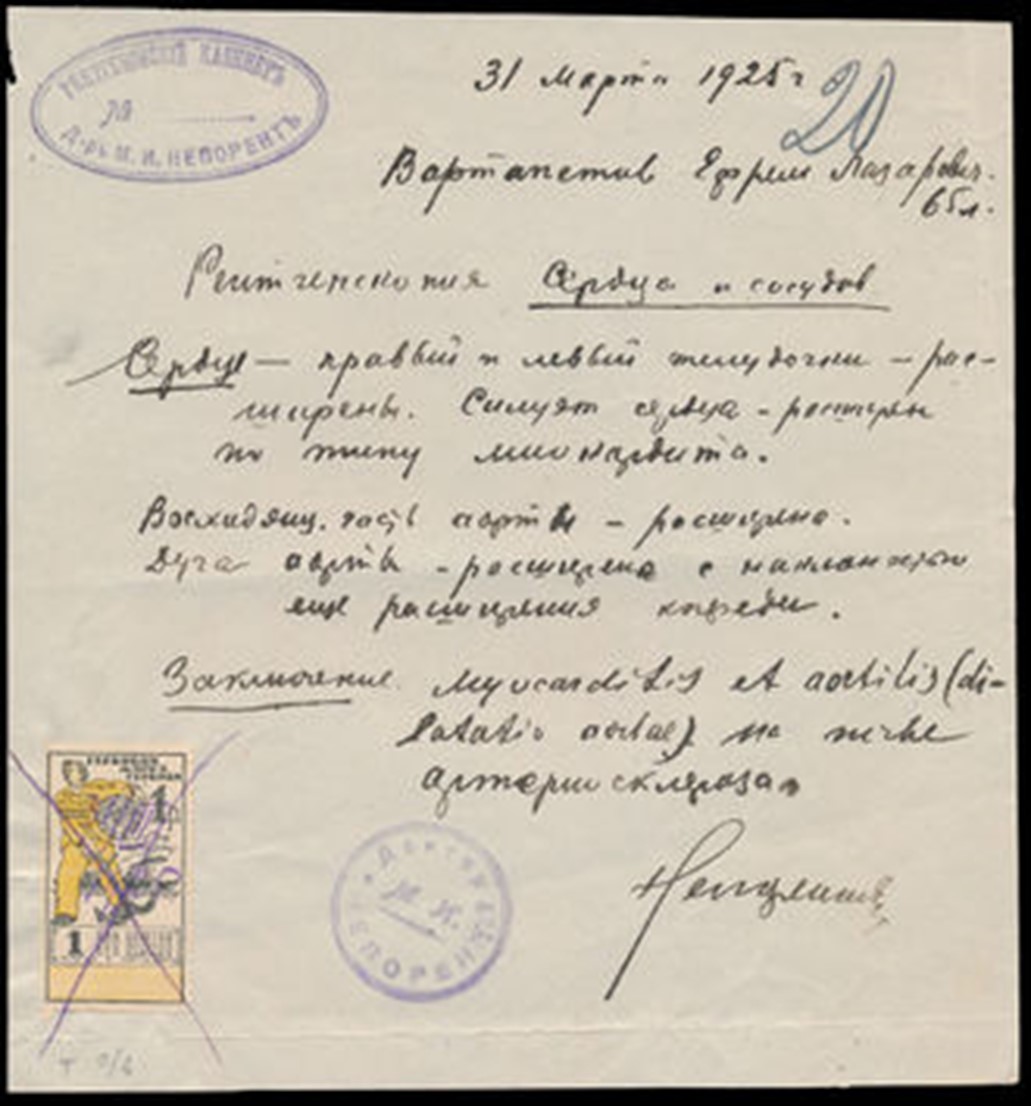 РЕНТГЕНОВСКІЙ КАБИНЕТЪ
№
Д-ръ М. И. НЕПОРЕНТЪ
31 Марта 1925 г
20
Вартапетов Ефрем Лазарович.
65 л.
Рентгеноскопия Сердца и сосудов
Сердце — правый и левый желудочки — рас-
ширены. Силуэт сердца - расширен
по типу миокардита.
Восходящ. часть аорты - расширена.
Дуга аорты - расширена с наклонностью
еще расширения кпереди.
Заключение Myocarditis et aortitis (di-
latatio aortae) на почве
артериосклероза
1
1
Доктор
М. И.
НЕПОРЕНТ